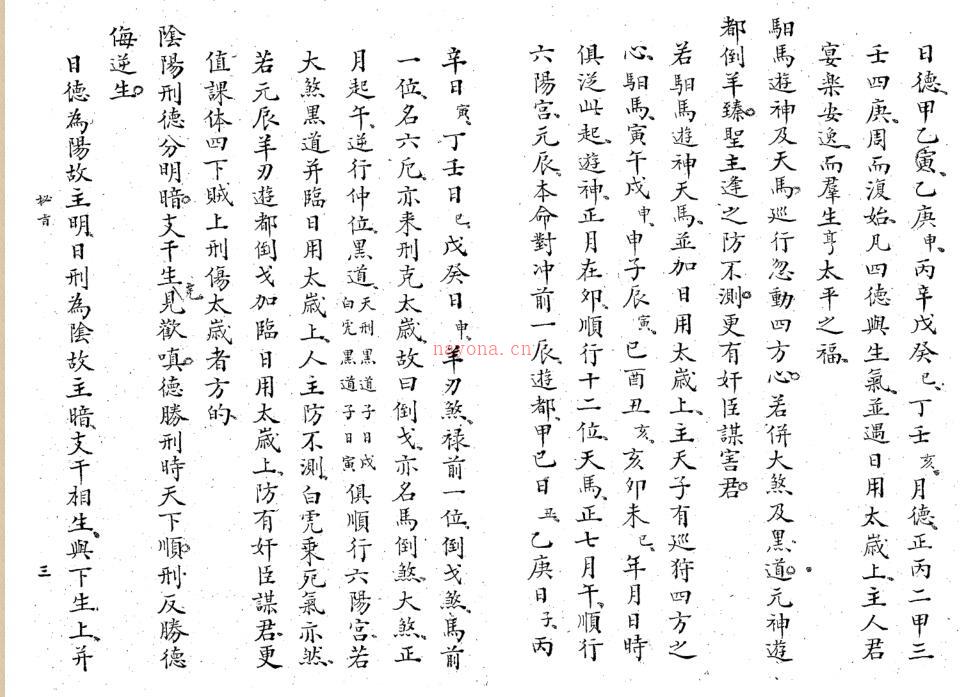 日德甲乙寅、乙庚申、丙辛戊癸巳、丁壬亥。月德、正丙二甲三
壬四庚、周而復始、凡四德與生氣、並遇日用太歲上、主人君
宴樂安逸、而羣生亨太平之福。
馹馬遊神及天馬。巡行忽動四方心。若併大煞及黑道。元神遊
都倒羊臻。聖主逢之防不測。更有奸臣謀害君。
若馹馬遊神天馬、並加日用太歲上、主天子有巡狩四方之
心、馹馬、寅午戌申、申子辰寅、巳酉丑亥、亥卯未巳、年月日時
俱從此起、遊神、正月在卯、順行十二位、天馬、正七月午、順行
六陽宮、元辰、本命對冲前一辰、遊都、甲己日丑、乙庚日子、丙
辛日寅、丁壬日巳、戊癸日申、羊刃煞、禄前一位、倒戈煞、馬前
一位、名六厄、亦来刑克太歲、故曰倒戈、亦名馬倒煞、大煞、正
月起午、逆行仲位、黑道、天刑黑道子日戌白虎黑道子日寅俱順行六陽宮、若
大煞黑道并臨日用太歲上、人主防不測、白虎乘死氣亦然、
若元辰羊刃遊都倒戈加臨日用太歲上、防有奸臣謀君、更
值課体四下賊上、刑傷太歲者方的、
陰陽刑德分明暗。支干生克見歡嗔。德勝刑時天下順。刑反勝德
侮逆生。
日德為陽故主明、日刑為陰故主暗、支干相生、與下生上、并
秘言
三
nayona.cn